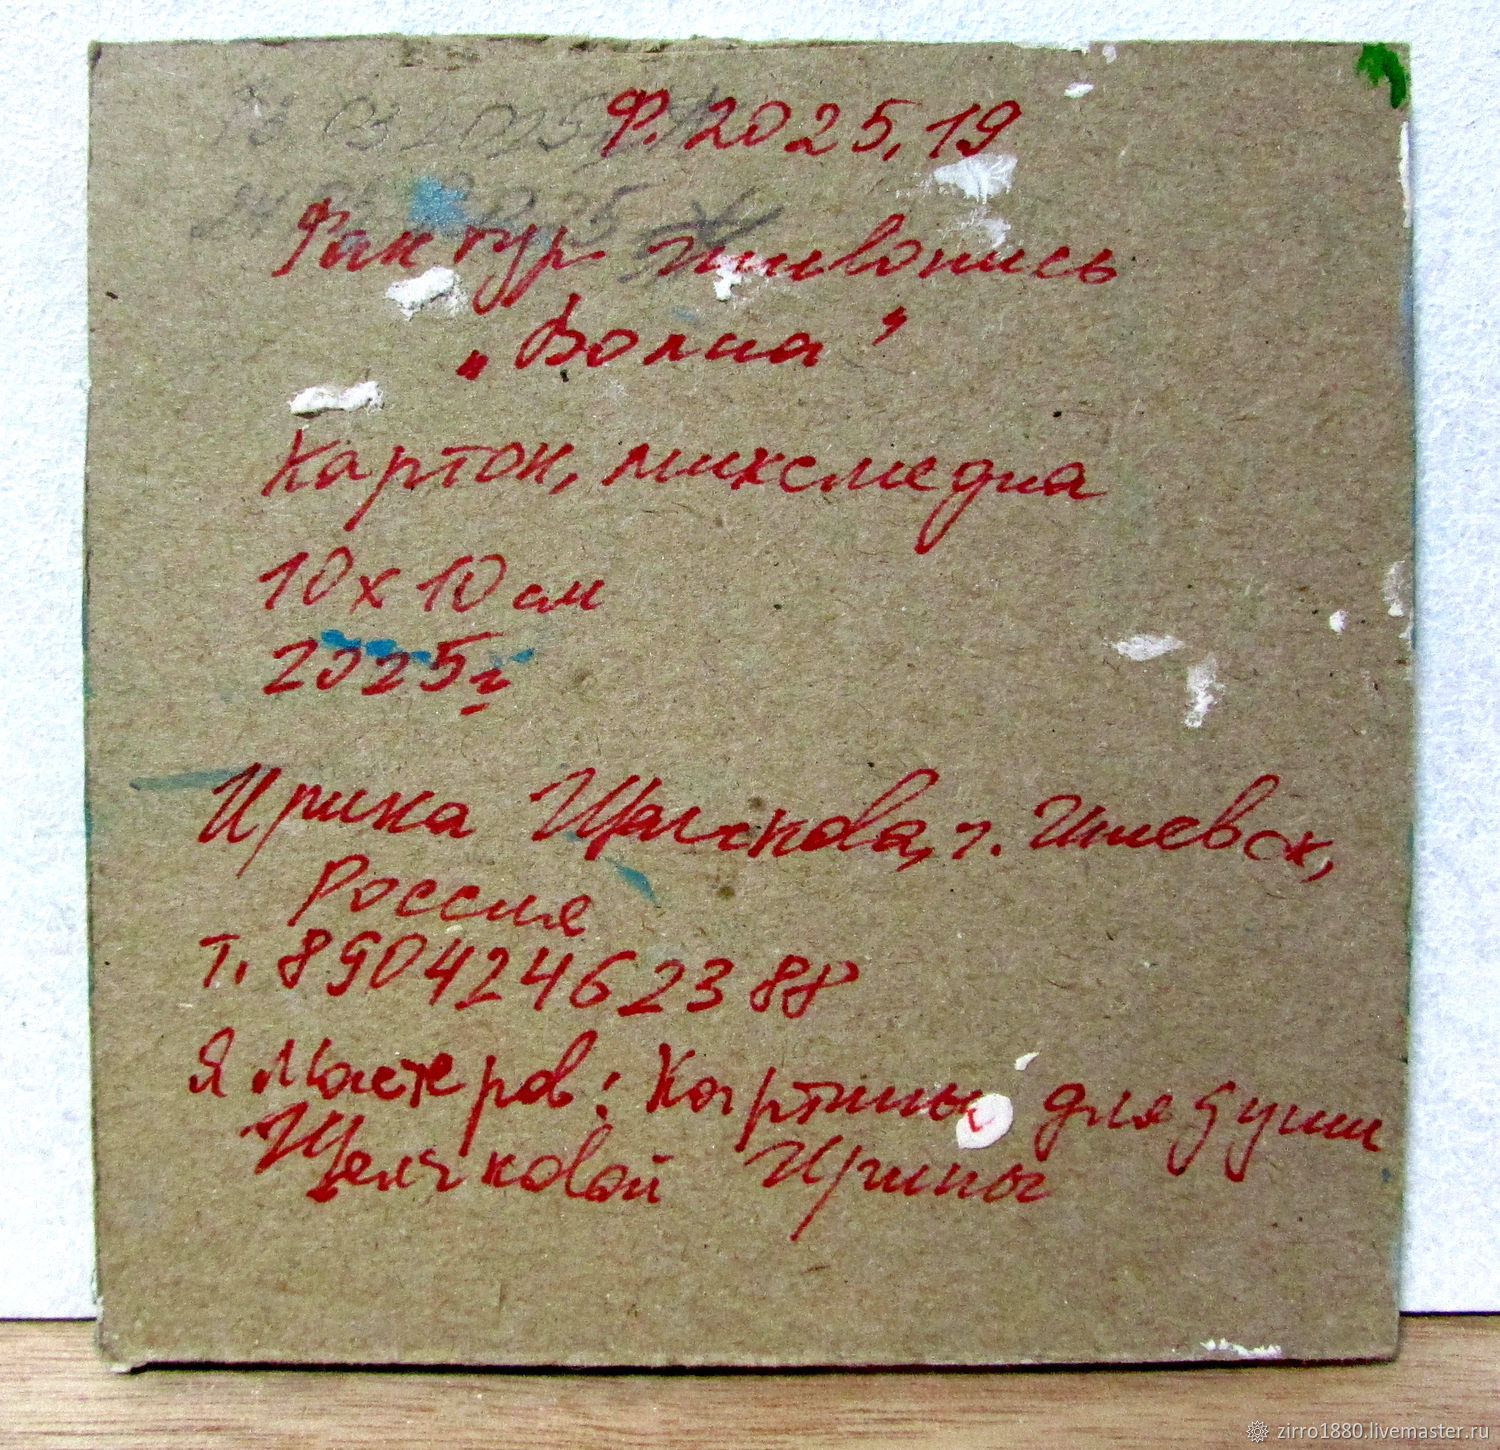 Ф. 2025, 19
Фактур живопись
„Волна”
Картон, миксмедиа
10 x 10 см
2025г
Ирина Щелчкова, г. Ижевск,
Россия
т. 89042462388
Я Мастеров: Картины для души
Щелчковой Ирины
zirro1880.livemaster.ru